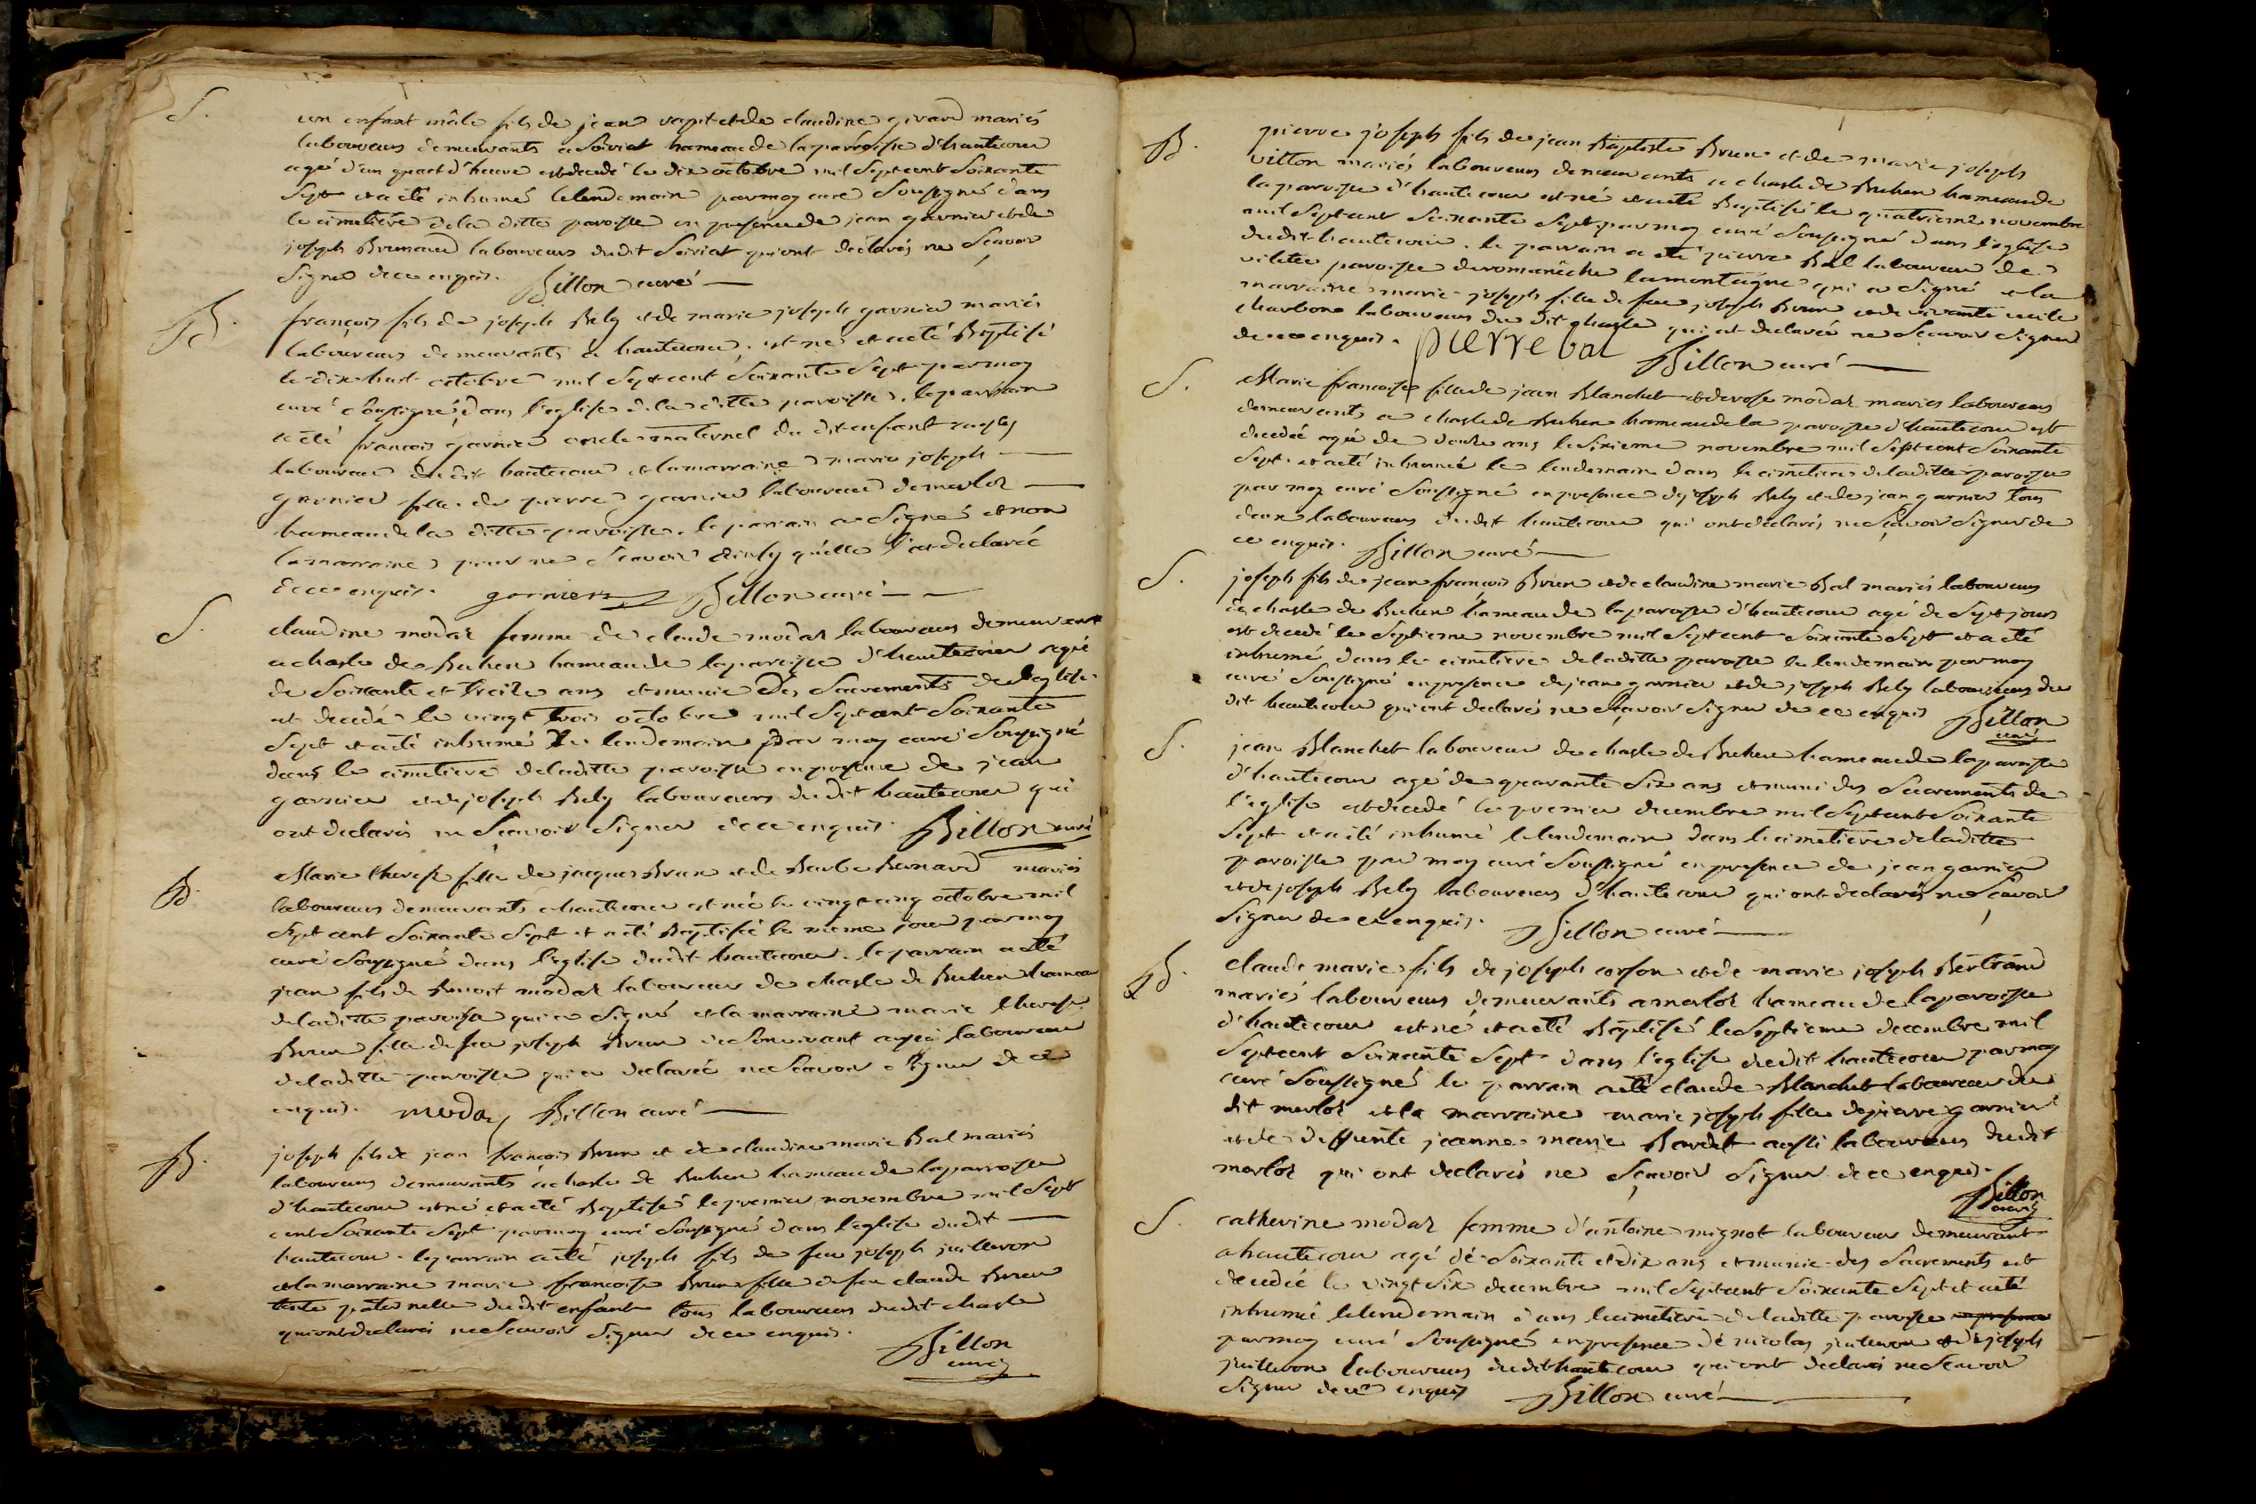 S.
un enfant mâle fils de jean vapit et de claudine givard mariés
laboureurs demeurants a Soiriat hameau de la parroisse d'hautecour
agé d'un quart d'heure est decedé le dix octobre mil Sept cent Soixante
Sept et a été inhumé le lendemain par moy curé Soussigné dans
le cimetière de la ditte paroisse en presence de jean garnier et de
joseph Brunaud laboureurs dudit Soiriat qui ont declarés ne Sçavoir
Signer de ce enquis. Billon curé
B.
françois fils de joseph Bely et de marie joseph garnier mariés
laboureurs demeurants a hautecour, est né et a eté Baptisé
le dix huit octobre mil Sept cent Soixante Sept par moy
curé Soussigné, dans l'eglise de la ditte paroisse, le parrain
a eté françois garnier oncle maternel du dit enfant
laboureur du dit hautecour et la marraine marie joseph
garnier fille de pierre garnier laboureur de merloz
hameau de la ditte paroisse. le parrain a Signé et non
la marraine pour ne Sçavoir qu'elle l'at declarée
de ce enquis. garnier Billon curé
S.
claudine modas femme de claude modas laboureurs demeurant
a chasle de Buhen hameau de la paroisse d'hautecour agée
de Soixante et treize ans et munie des Sacrements de l'eglise
est decedé le vingt trois octobre mil Sept cent Soixante
Sept et a eté inhumé le lendemain par moy curé Soussigné
dans le cimetiere de laditte paroisse en presence de jean
garnier et de joseph Bely laboureurs du dit hautecour qui
ont declarés ne Sçavoir Signer de ce enquis. Billon curé
B.
Marie therese fille de jacques Brun et de Barbe Bernard mariés
laboureurs demeurants a hautecour est née le vingt cinq octobre mil
Sept cent Soixante Sept et a eté Baptisée le même jour par moy
curé Soussigné dans l'eglise dudit hautecour. le parrain a eté
jean fils de Benoit modas laboureur de chasle de Buhen hameau
de laditte paroisse qui a Signé et la marraine marie therese
Brun fille de feu joseph Brun de Son vivant aussi laboureur
de laditte paroisse qui a declarée ne Sçavoir Signer de ce
enquis. moda Billon curé
B.
joseph fils de jean françois Brun et de claudine marie Bal mariés
laboureurs demeurants à chasle de Buhen hameau de la parroisse
d'hautecour est né et a eté Baptisé le premier novembre mil Sept
cent Soixante Sept par moy curé Soussigné dans l'eglise dudit
hautecour. le parrain a eté joseph fils de feu joseph juilleron
et la marraine marie françoise Brun fille de feu claude Brun
tante paternelle dudit enfant tous laboureurs dudit chasle
qui ont declarés ne Sçavoir Signer de ce enquis.
Billon
curé
B.
pierre joseph fils de jean Baptiste Brun et de marie joseph
vitton mariés laboureurs demeurants a chasle de Buhen hameau de
la paroisse d'hautecour est né et a eté Baptisé le quatrieme novembre
mil Sept cent Soixante Sept par moy curé Soussigné dans l'eglise
du dit hautecour. le parrain a eté pierre Bal laboureur de
villette paroisse de romanêche la montaigne qui a Signé et la
marraine marie joseph fille de feu joseph Brun et de vivante cecile
charbon laboureurs du dit chasle qui at declarée ne Sçavoir Signer
de ce enquis. pierre bal Billon curé
S.
Marie françoise fille de jean Blanchet et de rose modas mariés laboureurs
demeurants a chasle de Buhen hameau de la paroisse d'hautecour est
decedée agée de douze ans le Sixieme novembre mil Sept cent Soixante
Sept. et a eté inhumée le lendemain dans le cimetiere de laditte paroisse
par moy curé Soussigné en presence de joseph Bely et de jean garnier tous
deux laboureurs du dit hautecour qui ont declarés ne Sçavoir Signer de
ce enquis. Billon curé
S.
joseph fils de jean françois Brun et de claudine marie Bal mariés laboureurs
à chasle de Buhen hameau de la paroisse d'hautecour agé de Sept jours
est decedé le Septieme novembre mil Sept cent Soixante Sept et a eté
inhumé dans le cimetiere de laditte paroisse le lendemain par moy
curé Soussigné en presence de jean garnier et de joseph Bely laboureurs du
dit hautecour qui ont declarés ne Sçavoir Signer de ce enquis Billon
curé
S.
jean Blanchet laboureur de chasle de Buhen hameau de la paroisse
d'hautecour agé de quarante Six ans et muni des Sacrements de
l'eglise est decedé le premier decembre mil Sept cent Soixante
Sept et a été inhumé le lendemain dans le cimetiere de laditte
paroisse par moy curé Soussigné en presence de jean garnier
et de joseph Bely laboureurs d'hautecour qui ont declarés ne Sçavoir
Signer de ce enquis. Billon curé
B.
claude marie fils de joseph corson et de marie joseph Bertrand
mariés laboureurs demeurants a merloz hameau de la paroisse
d'hautecour est né et a eté Baptisé le Septieme decembre mil
Sept cent Soixante Sept dans l'eglise dudit hautecour par moy
curé Soussigné le parrain a eté claude Blanchet laboureur du
dit merloz et la marraine marie joseph fille de pierre garnier
et de deffunte jeanne marie Bardet aussi laboureurs dudit
merloz qui ont declarés ne Sçavoir Signer de ce enquis.
Billon
curé
S.
catherine modas femme d'antoine mignot laboureur demeurant
a hautecour agé de Soixante et dix ans et munie des Sacrements est
decedée le vingt Six decembre mil Sept cent Soixante Sept et a eté
inhumée le lendemain dans le cimetiere de laditte paroisse en presence
par moy curé Soussigné en presence de nicolas juilleron et de joseph
juilleron laboureurs dudit hautecour qui ont declarés ne Sçavoir
Signer de ce enquis Billon curé